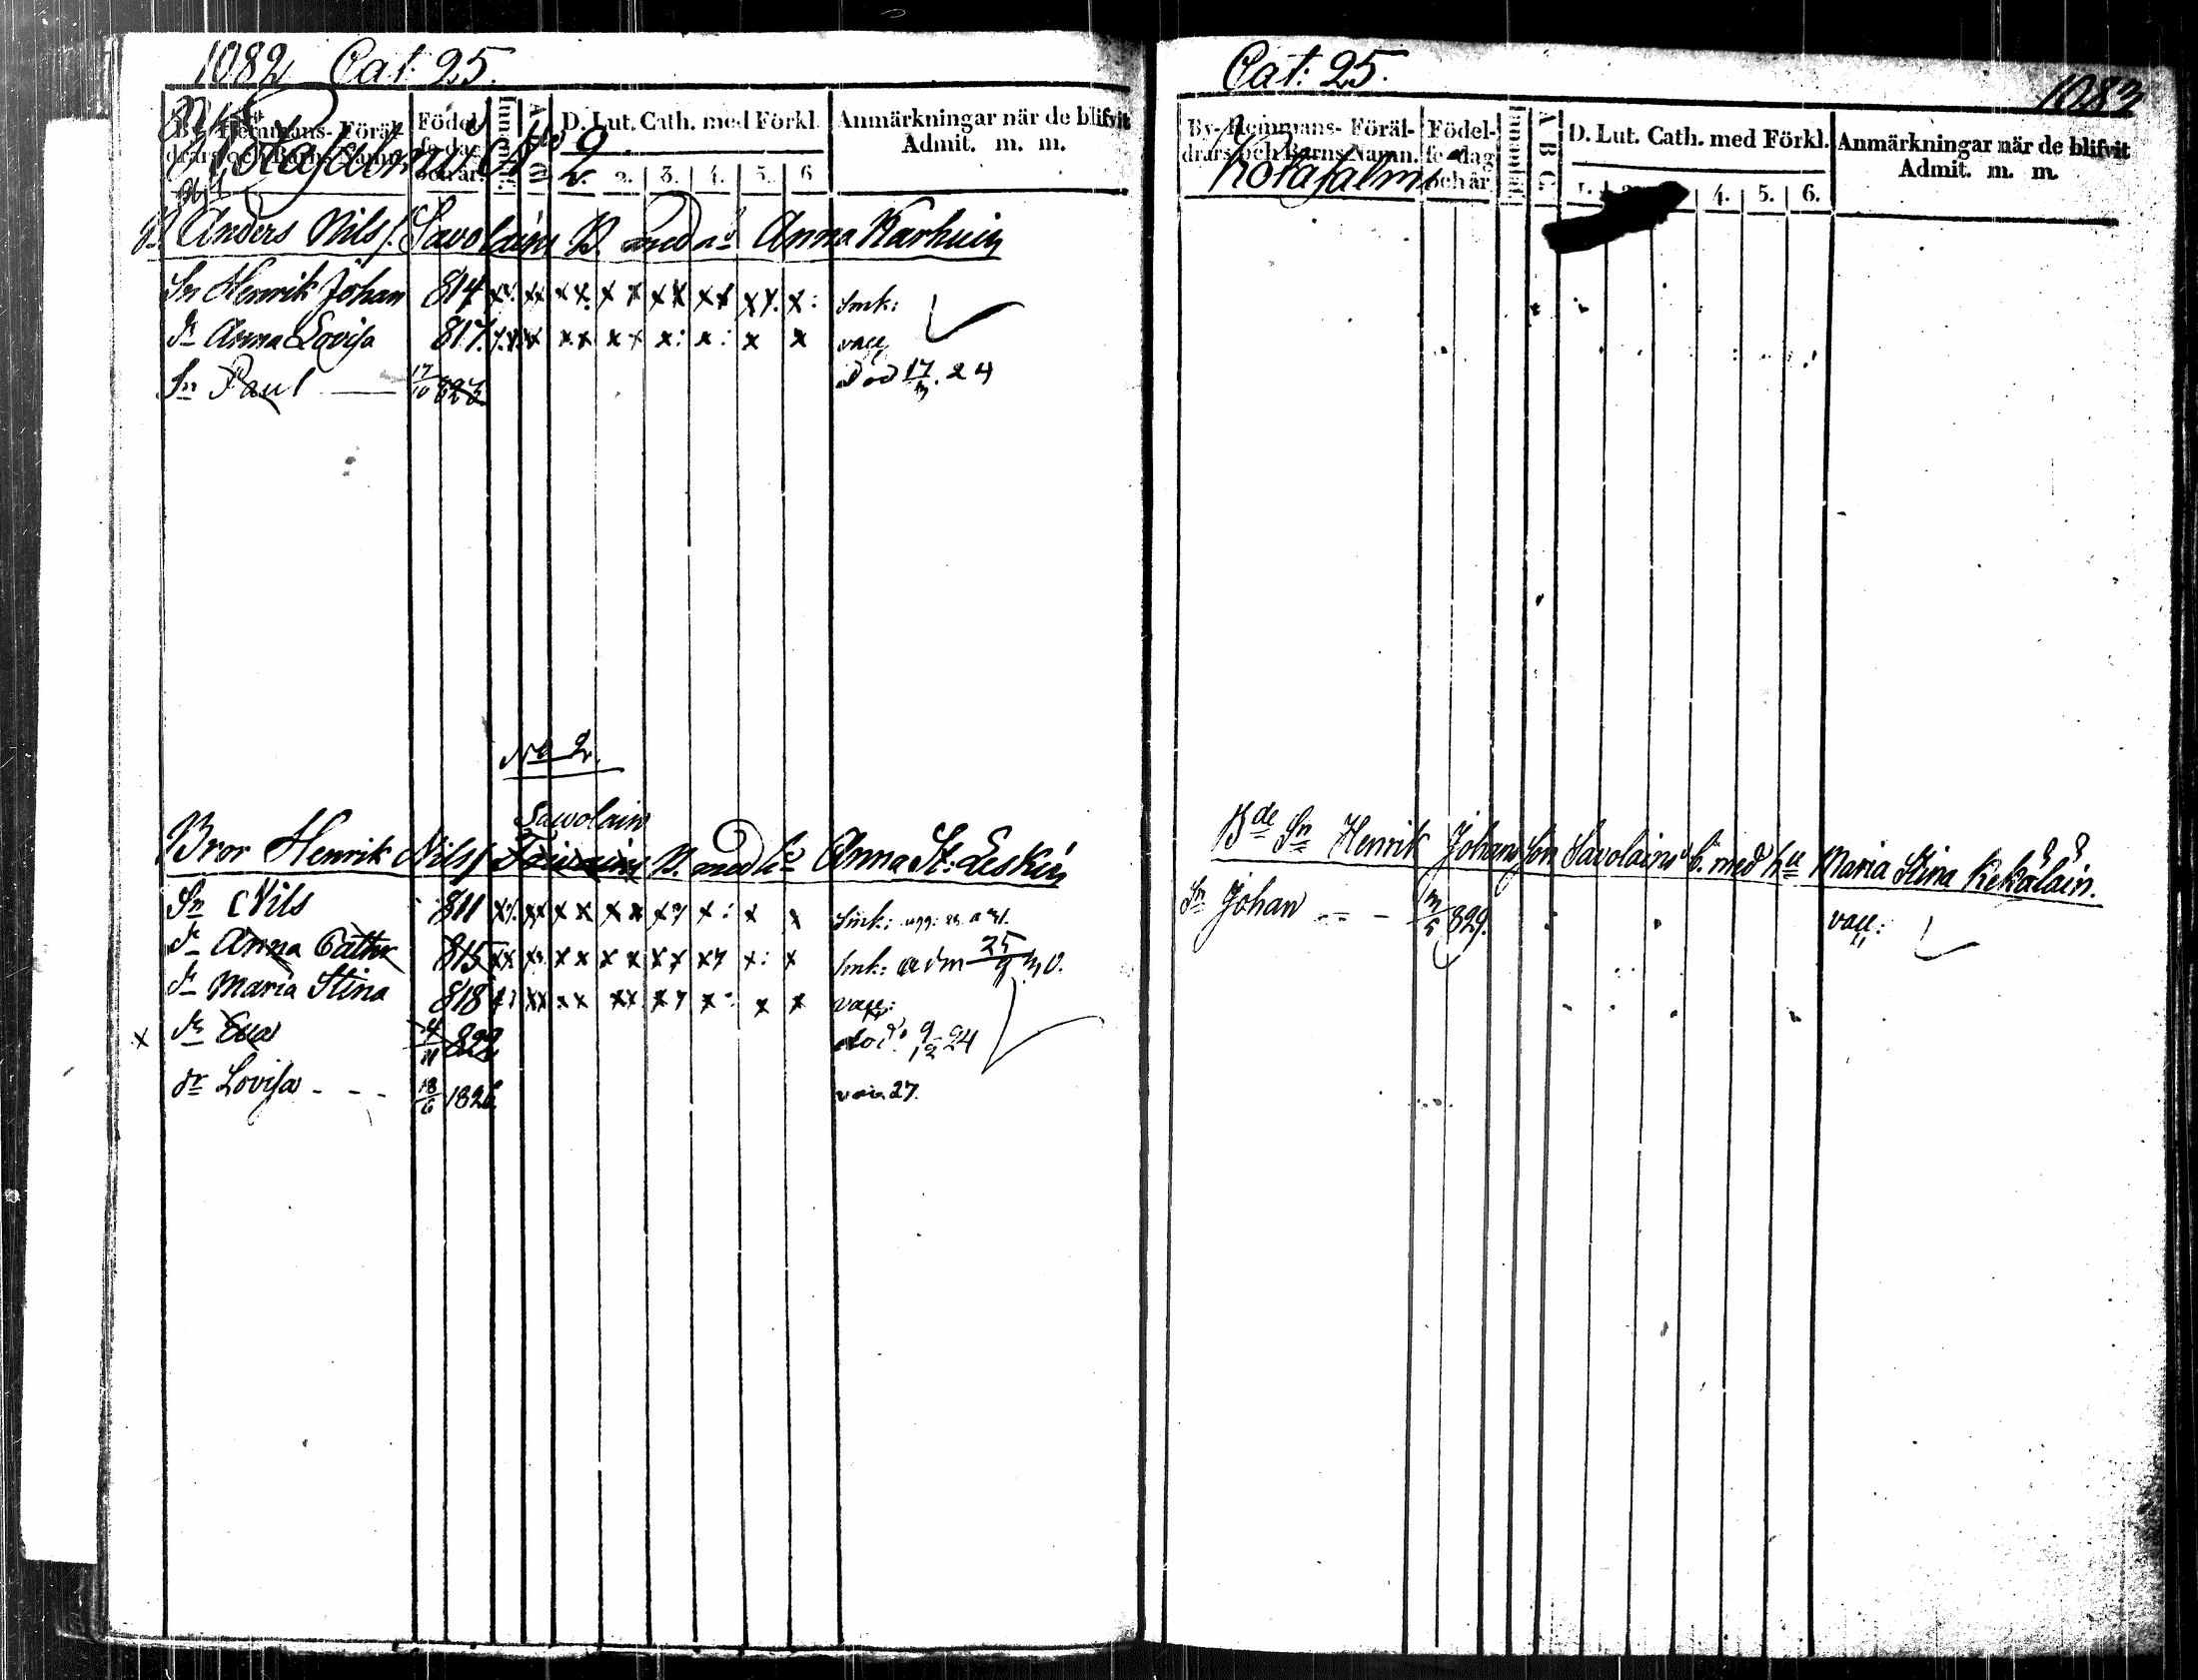 1082 Cat. 25.
By- Hemmans- Föräl-
drars och Barns Namn.
Födel-
se-dag
och år.
Innanläs.
A B C
D. Lut. Cath. med Förkl.
2. 3. 4. 5. 6
Anmärkningar när de blifvit
Admit. m. m.
Kotasalmi No 2
Anders Nilsf. Savolain B. med Anna Karhuin
Sn Henrik Johan 814 xx. xx xx. x x xx xx xx. x: Smk:
Dr Anna Lovisa 817. xx xx xx xx x: x: x x vacc
Sn Paul 17/10 823. död 17/3. 24
No 2.
Savolain
Bror Henrik Nilsf B. med h: Anna St: Leskin
Sn Nils 811 xx. xx xx xx xx x: x x Smk:
Dr Anna Cathr 815 xx x. xx xx xx xx x: x Smk: adm 25/9 30.
Dr Maria Stina 818 xx xx xx xx x: x x vacc:
x Dr Eva 822 död 9/12 24
Dr Lovisa - - - 18/6 1826 vac 27.
Cat: 25. 1083
By- Hemmans- Föräl-
drars och Barns Namn.
Födel-
se-dag
och år
Innanläs.
A B C
D. Lut. Cath. med Förkl.
1. 4. 5. 6.
Anmärkningar när de blifvit
Admit. m. m.
Kotasalmi
Bde Sn Henrik Johansson Savolains B. med h Maria Stina Kekäläin.
Sn Johan - - - 3/5 829. vacc: